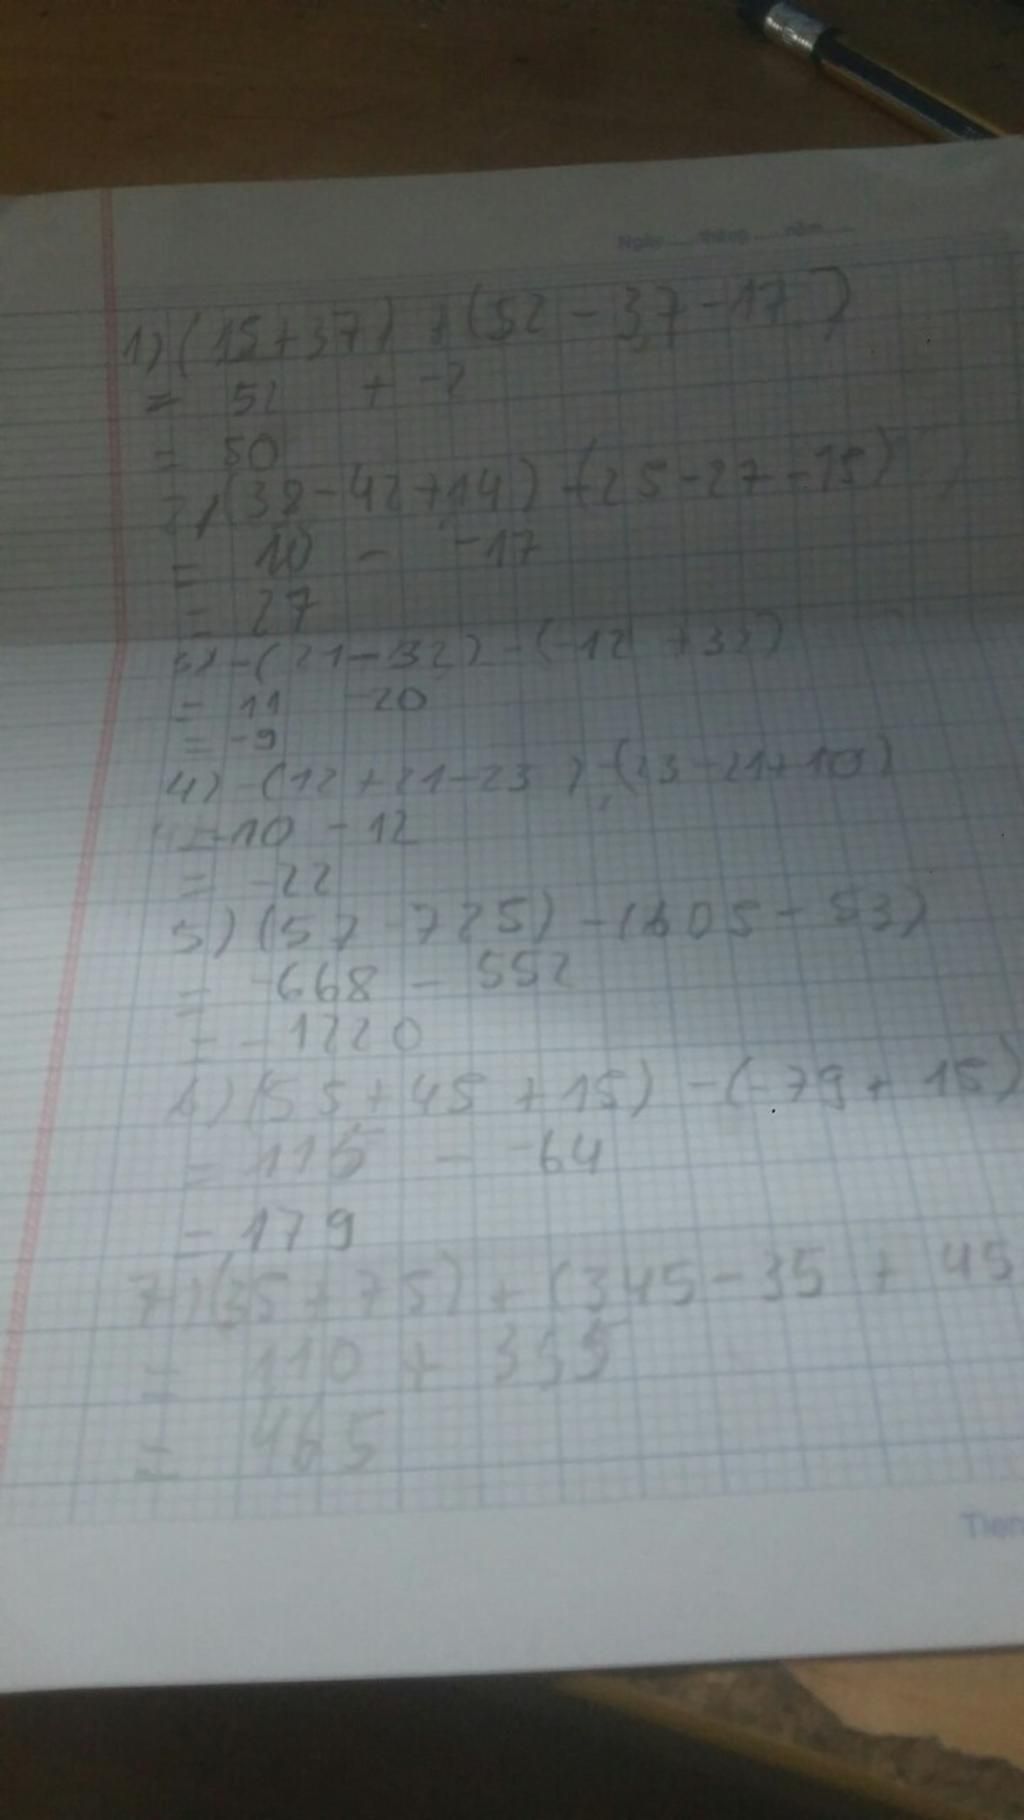 Ngày.....tháng.....năm.....
1) (15+37) + (52 - 37 - 17)
= 52 + -2
= 50
2) (38 - 42 + 14) - (25 - 27 - 15)
= 10 - -17
= 27
3) -(21 - 32) - (-12 + 32)
= 11 -20
= -9
4) -(12 + 21 - 23) - (23 - 21 + 10)
= -10 - 12
= -22
5) (57 - 725) - (605 - 53)
= -668 - 552
= - 1220
6) (55 + 45 + 15) - (-79 + 15)
= 115 - -64
= 179
7) (35 + 75) + (345 - 35 + 45
= 110 + 355
= 465
Tien